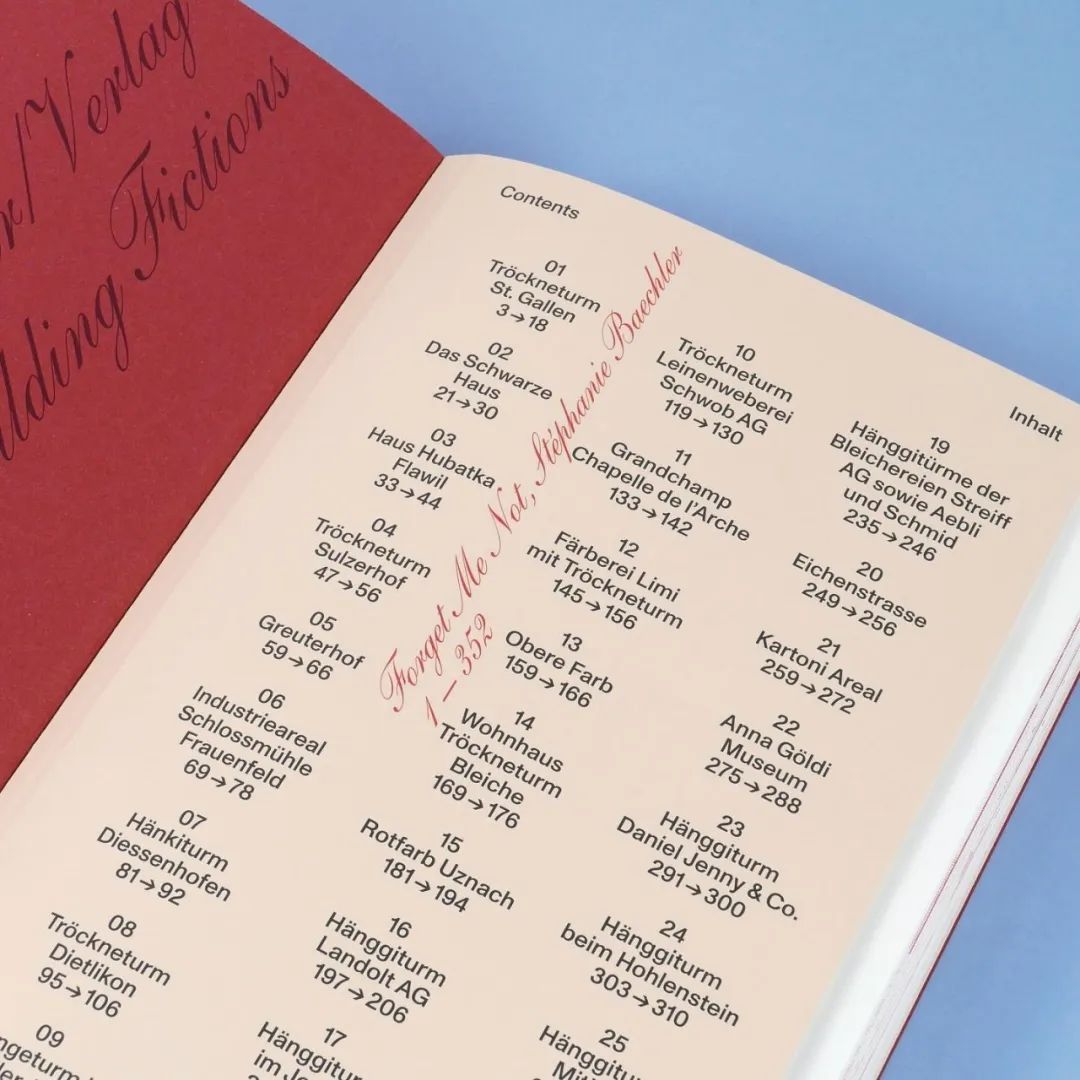 Verlag
Fictions
Contents
Inhalt
01
Tröckneturm
St. Gallen
3→18
02
Das Schwarze
Haus
21→30
03
Haus Hubatka
Flawil
33→44
04
Tröckneturm
Sulzerhof
47→56
05
Greuterhof
59→66
06
Industrieareal
Schlossmühle
Frauenfeld
69→78
07
Hänkiturm
Diessenhofen
81→92
08
Tröckneturm
Dietlikon
95→106
09
Forget Me Not, Stéphanie Baechler
1 – 352
10
Tröckneturm
Leinenweberei
Schwob AG
119→130
11
Grandchamp
Chapelle de l'Arche
133→142
12
Färberei Limi
mit Tröckneturm
145→156
13
Obere Farb
159→166
14
Wohnhaus
Tröckneturm
Bleiche
169→176
15
Rotfarb Uznach
181→194
16
Hänggiturm
Landolt AG
197→206
17
im
19
Hänggitürme der
Bleichereien Streiff
AG sowie Aebli
und Schmid
235→246
20
Eichenstrasse
249→256
21
Kartoni Areal
259→272
22
Anna Göldi
Museum
275→288
23
Hänggiturm
Daniel Jenny & Co.
291→300
24
Hänggiturm
beim Hohlenstein
303→310
25